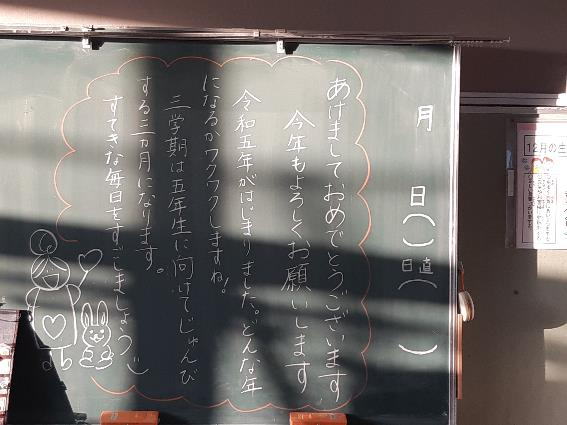 月　日（　）
日直（　）
あけましておめでとうございます
今年もよろしくお願いします
令和五年がはじまりました。どんな年
になるかワクワクしますね！
三学期は五年生に向けてじゅんび
する三ヵ月になります。
すてきな毎日をすごしましょう
12月の生